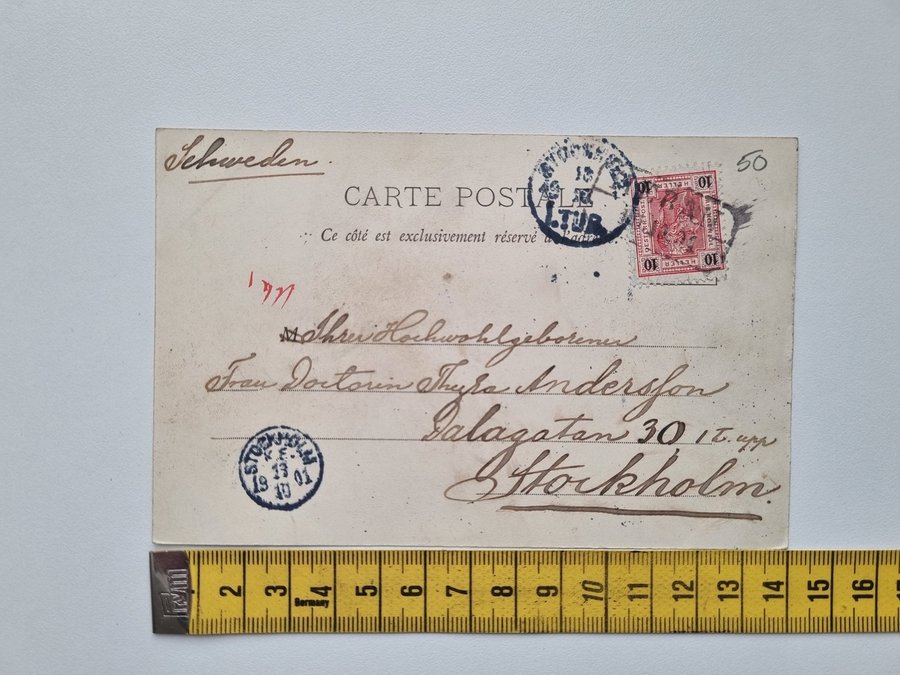 Schweden.
50
CARTE POSTALE
Ce côté est exclusivement réservé à
STOCKHOLM
13
1.TUR
10 HELLER 10
10 HELLER 10
M Ihrer Hochwohlgeborenen
Frau Doctorin Thyra Andersson
Dalagatan 30 1 t. upp
Stockholm.
STOCKHOLM
K.E.
13
19 01
10
2 3 4 5 6 7 8 9 10 11 12 13 14 15 16
Germany